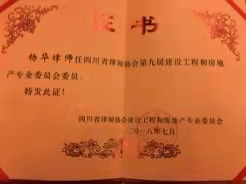 证书
杨华律师任四川省律师协会第九届建设工程和房地
产专业委员会委员。
特发此证！
四川省律师协会建设工程和房地产专业委员会
二〇一八年七月